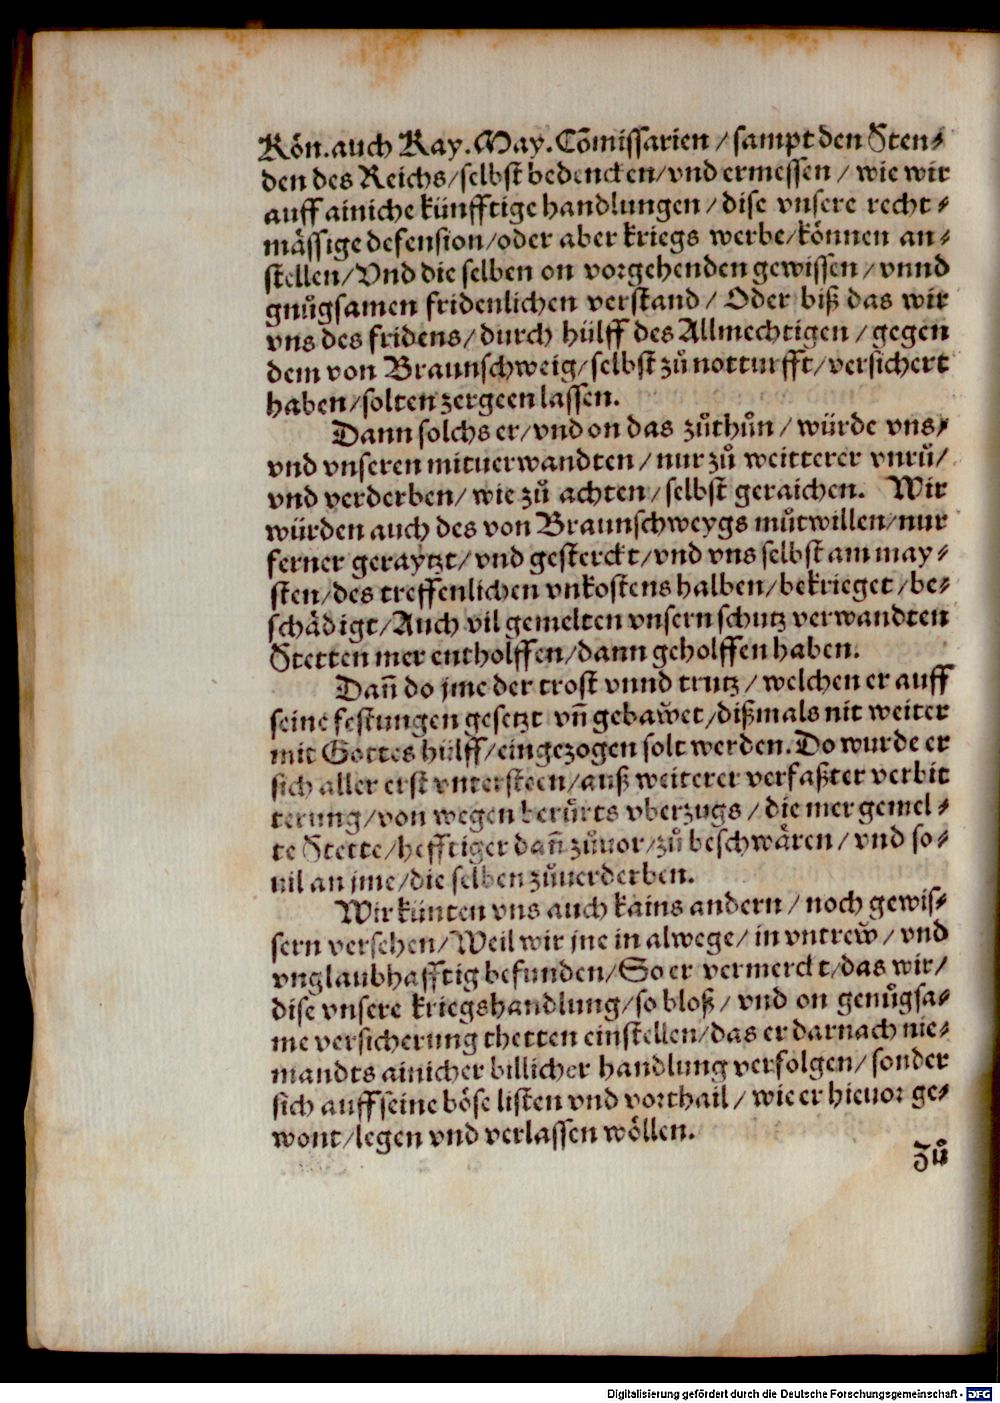 Kön. auch Kay. May. Cõmissarien / sampt den Sten⸗
den des Reichs / selbst bedencken / vnd ermessen / wie wir
auff ainiche künfftige handlungen / dise vnsere recht⸗
mässige defension / oder aber kriegs werbe / können an⸗
stellen / Vnd die selben on vorgehenden gewissen / vnnd
gnuͦgsamen fridenlichen verstand / Oder biß das wir
vns des fridens / durch hülff des Allmechtigen / gegen
dem von Braunschweig / selbst zuͦ notturfft / versichert
haben / solten zergeen lassen.
Dann solchs er / vnd on das zuͦthuͦn / würde vns /
vnd vnseren mituerwandten / nur zuͦ weitterer vnruͦ /
vnd verderben / wie zuͦ achten / selbst geraichen. Wir
würden auch des von Braunschweygs muͦtwillen / nur
ferner geraytzt / vnd gesterckt / vnd vns selbst am may⸗
sten / des treffenlichen vnkostens halben / bekrieget / be⸗
schädigt / Auch vil gemelten vnsern schutz verwandten
Stetten mer entholffen / dann geholffen haben.
Dañ do jme der trost vnnd trutz / welchen er auff
seine festungen gesetzt vñ gebawet / dißmals nit weiter
mit Gottes hülff / eingezogen solt werden. Do wurde er
sich aller erst vntersteen / auß weiterer verfaßter verbit
terung / von wegen beruͦrts vberzugs / die mer gemel⸗
te Stette / hefftiger dañ zuͦuor / zuͦ beschwären / vnd so⸗
uil an jme / die selben zuͦuerderben.
Wir künten vns auch kains andern / noch gewis⸗
sern versehen / Weil wir jne in alwege / in vntrew / vnd
vnglaubhafftig befunden / So er vermerckt / das wir /
dise vnsere kriegshandlung / so bloß / vnd on genuͦgsa⸗
me versicherung thetten einstellen / das er darnach nie⸗
mandts ainicher billicher handlung verfolgen / sonder
sich auff seine böse listen vnd vorthail / wie er hieuor ge⸗
wont / legen vnd verlassen wöllen.
Zuͦ
Digitalisierung gefördert durch die Deutsche Forschungsgemeinschaft - DFG